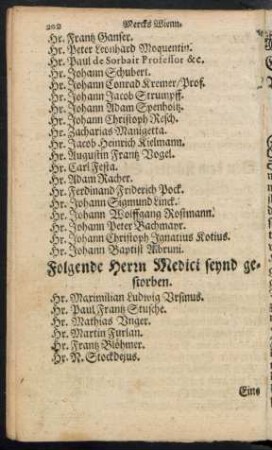 202 Mercks Wienn.
Hr. Frantz Ganser.
Hr. Peter Leonhard Moquentin.
Hr. Paul de Sorbait Professor &c.
Hr. Johann Schubert.
Hr. Johann Conrad Kremer/Prof.
Hr. Johann Jacob Strumpff.
Hr. Johann Adam Spenholtz.
Hr. Johann Christoph Resch.
Hr. Zacharias Manigetta.
Hr. Jacob Heinrich Kielmann.
Hr. Augustin Frantz Vogel.
Hr. Carl Festa.
Hr. Adam Racher.
Hr. Ferdinand Friderich Pock.
Hr. Johann Sigmund Linck.
Hr. Johann Wolffgang Rostmann.
Hr. Johann Peter Bachmayr.
Hr. Johann Christoph Ignatius Kotius.
Hr. Johann Baptist Albrum.
Folgende Herrn Medici seynd ge-
storben.
Hr. Maximilian Ludwig Vrsinus.
Hr. Paul Frantz Stusche.
Hr. Mathias Vnger.
Hr. Martin Furlan.
Hr. Frantz Blöhmer.
Hr. N. Stockdejus.
Eins